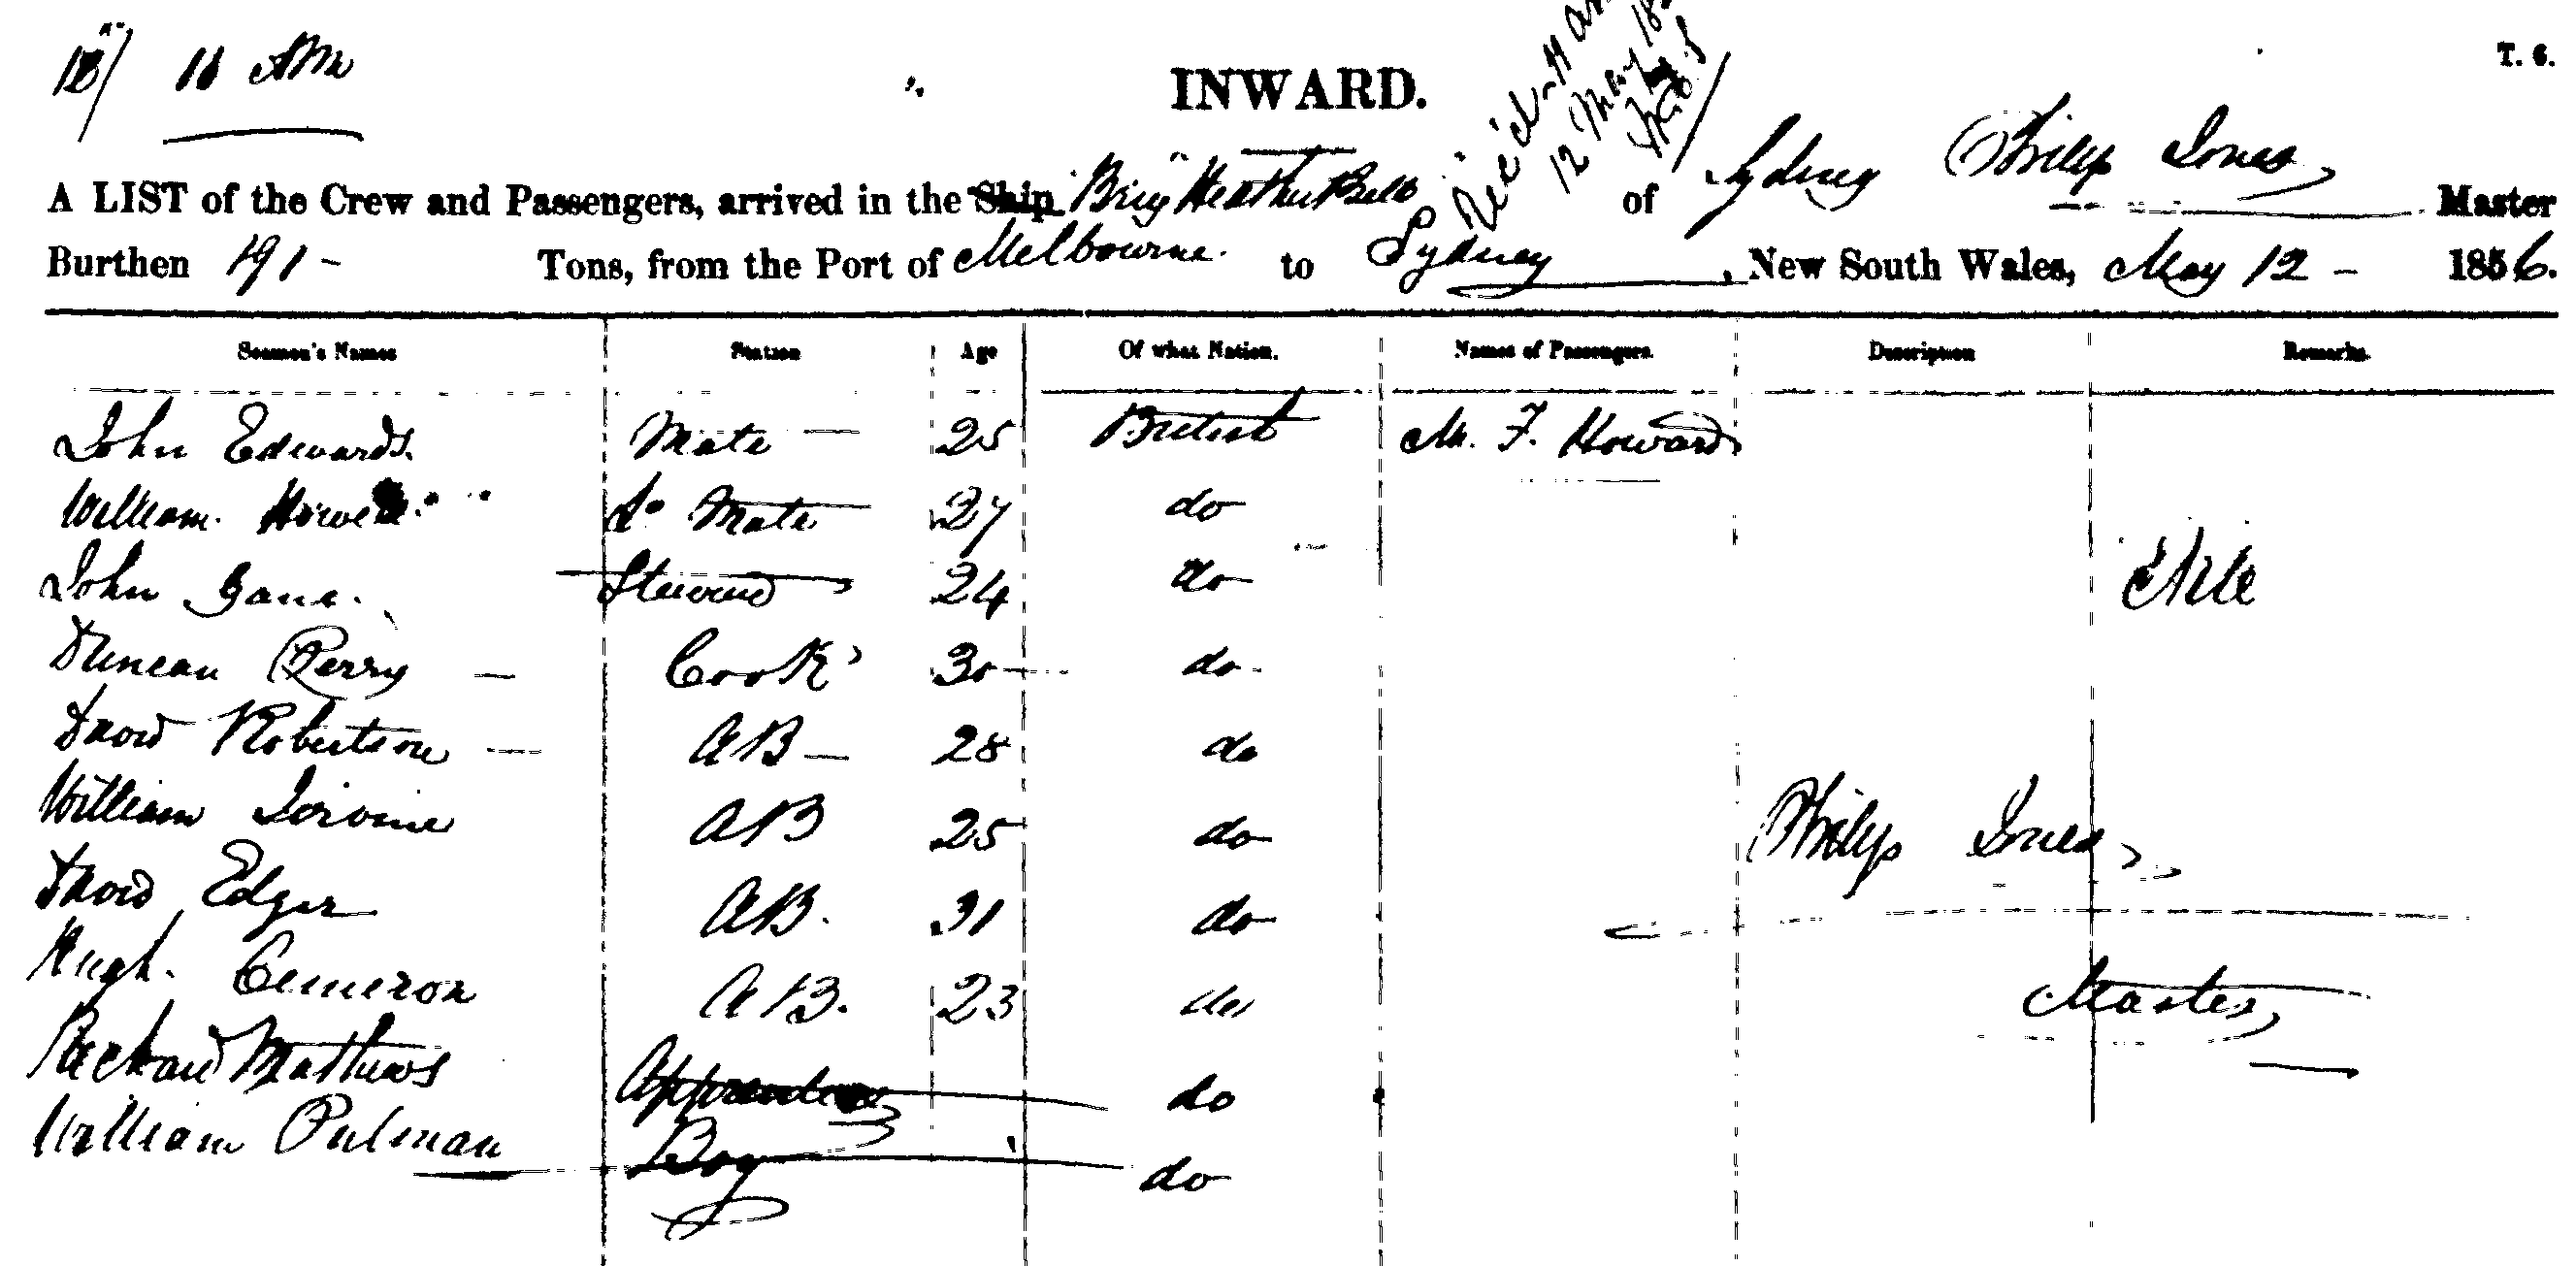 18/ 11 AM
INWARD.
T. 6.
12 May
A LIST of the Crew and Passengers, arrived in the Ship Brig Heather Bell of Sydney Philip Jones Master
Burthen 191 - Tons, from the Port of Melbourne. to Sydney, New South Wales, May 12 - 1856.
Seamen's Names Station Age Of what Nation. Names of Passengers. Description Remarks.
John Edwards. Mate 25 British M. F. Howard
William 2o Mate 27 do
John Gane. Steward 24 do
Duncan Perry - Cook 30 do
David Robertson - AB - 28 do
William Jerome AB 25 do Philip Jones
David Edgar AB. 31 do
Hugh. Cameron AB. 23 do Master
Richard Mathews Apprentice do
William Pulman Boy do